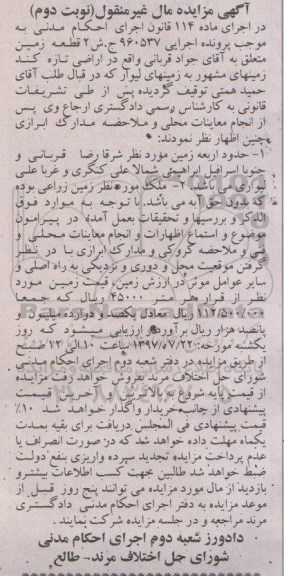 آگهی مزایده مال غیرمنقول(نوبت دوم)
در اجرای ماده ۱۱۴ قانون اجرای احکام مدنی به
موجب پرونده اجرایی ۹۶۰۵۳۷ ج.ش۲ قطعه زمین
متعلق به آقای جواد قربانی واقع در اراضی تازه کند
زمینهای مشهور به زمینهای لیوار که در قبال طلب آقای
حمید همتی توقیف گردیده پس از طی تشریفات
قانونی به کارشناس رسمی دادگستری ارجاع وی پس
از انجام معاینات محلی و ملاحضه مدارک ابرازی
چنین اظهار نظر نمودند:
۱- حدود اربعه زمین مورد نظر شرقا رضا قربانی و
جنوبا اسرافیل ابراهیمی شمالا علی کنگری و غربا علی
لیواری می باشد. ۲- ملک مورد نظر زمین زراعی بوده
که بدون حق آبه می باشد. با توجه به موارد فوق
الذکر و بررسیها و تحقیقات بعمل آمده در پیرامون
موضوع و استماع اظهارات و انجام معاینات محلی و
فنی و ملاحضه کروکی و مدارک ابرازی با در نظر
گرفتن موقعیت محل و دوری و نزدیکی به راه اصلی و
سایر عوامل موثر در ارزش زمین، قیمت زمین مورد
نظر از قرار هر متر ۴۵۰۰۰ ریال که جمعا
۱۱۲/۵۰۰/۰۰۰ ریال معادل یکصد و دوازده میلیون و
پانصد هزار ریال برآورد و ارزیابی میشود که روز
یکشنبه مورخه: ۱۳۹۷/۰۷/۲۲ ساعت ۱۰ الی ۱۲ صبح
از طریق مزایده در دفتر شعبه دوم اجرای احکام مدنی
شورای حل اختلاف مرند بفروش خواهد رفت مزایده
از قیمت پایه شروع به بالاترین و آخرین قیمت
پیشنهادی از جانب خریدار واگذار خواهد شد ۱۰٪
قیمت پیشنهادی فی المجلس دریافت برای بقیه بمدت
یکماه مهلت داده خواهد شد که در صورت انصراف یا
عدم پرداخت مزایده تجدید سپرده واریزی بنفع دولت
ضبط خواهد شد طالبین مجهت کسب اطلاعات بیشتر و
بازدید از مال مورد مزایده می توانند پنج روز قبل از
موعد مزایده به دفتر اجرای احکام مدنی دادگستری
مرند مراجعه و در جلسه مزایده شرکت نمایند.
دادورز شعبه دوم اجرای احکام مدنی
شورای حل اختلاف مرند- طالع